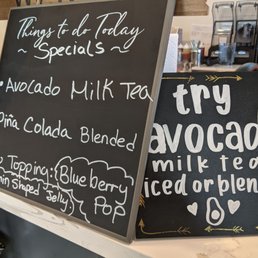 Things to do Today
~ Specials ~
• Avocado Milk Tea
Piña Colada Blended
Topping: Blueberry Pop
Shaped Jelly
try
avocado
milk tea
iced or blen